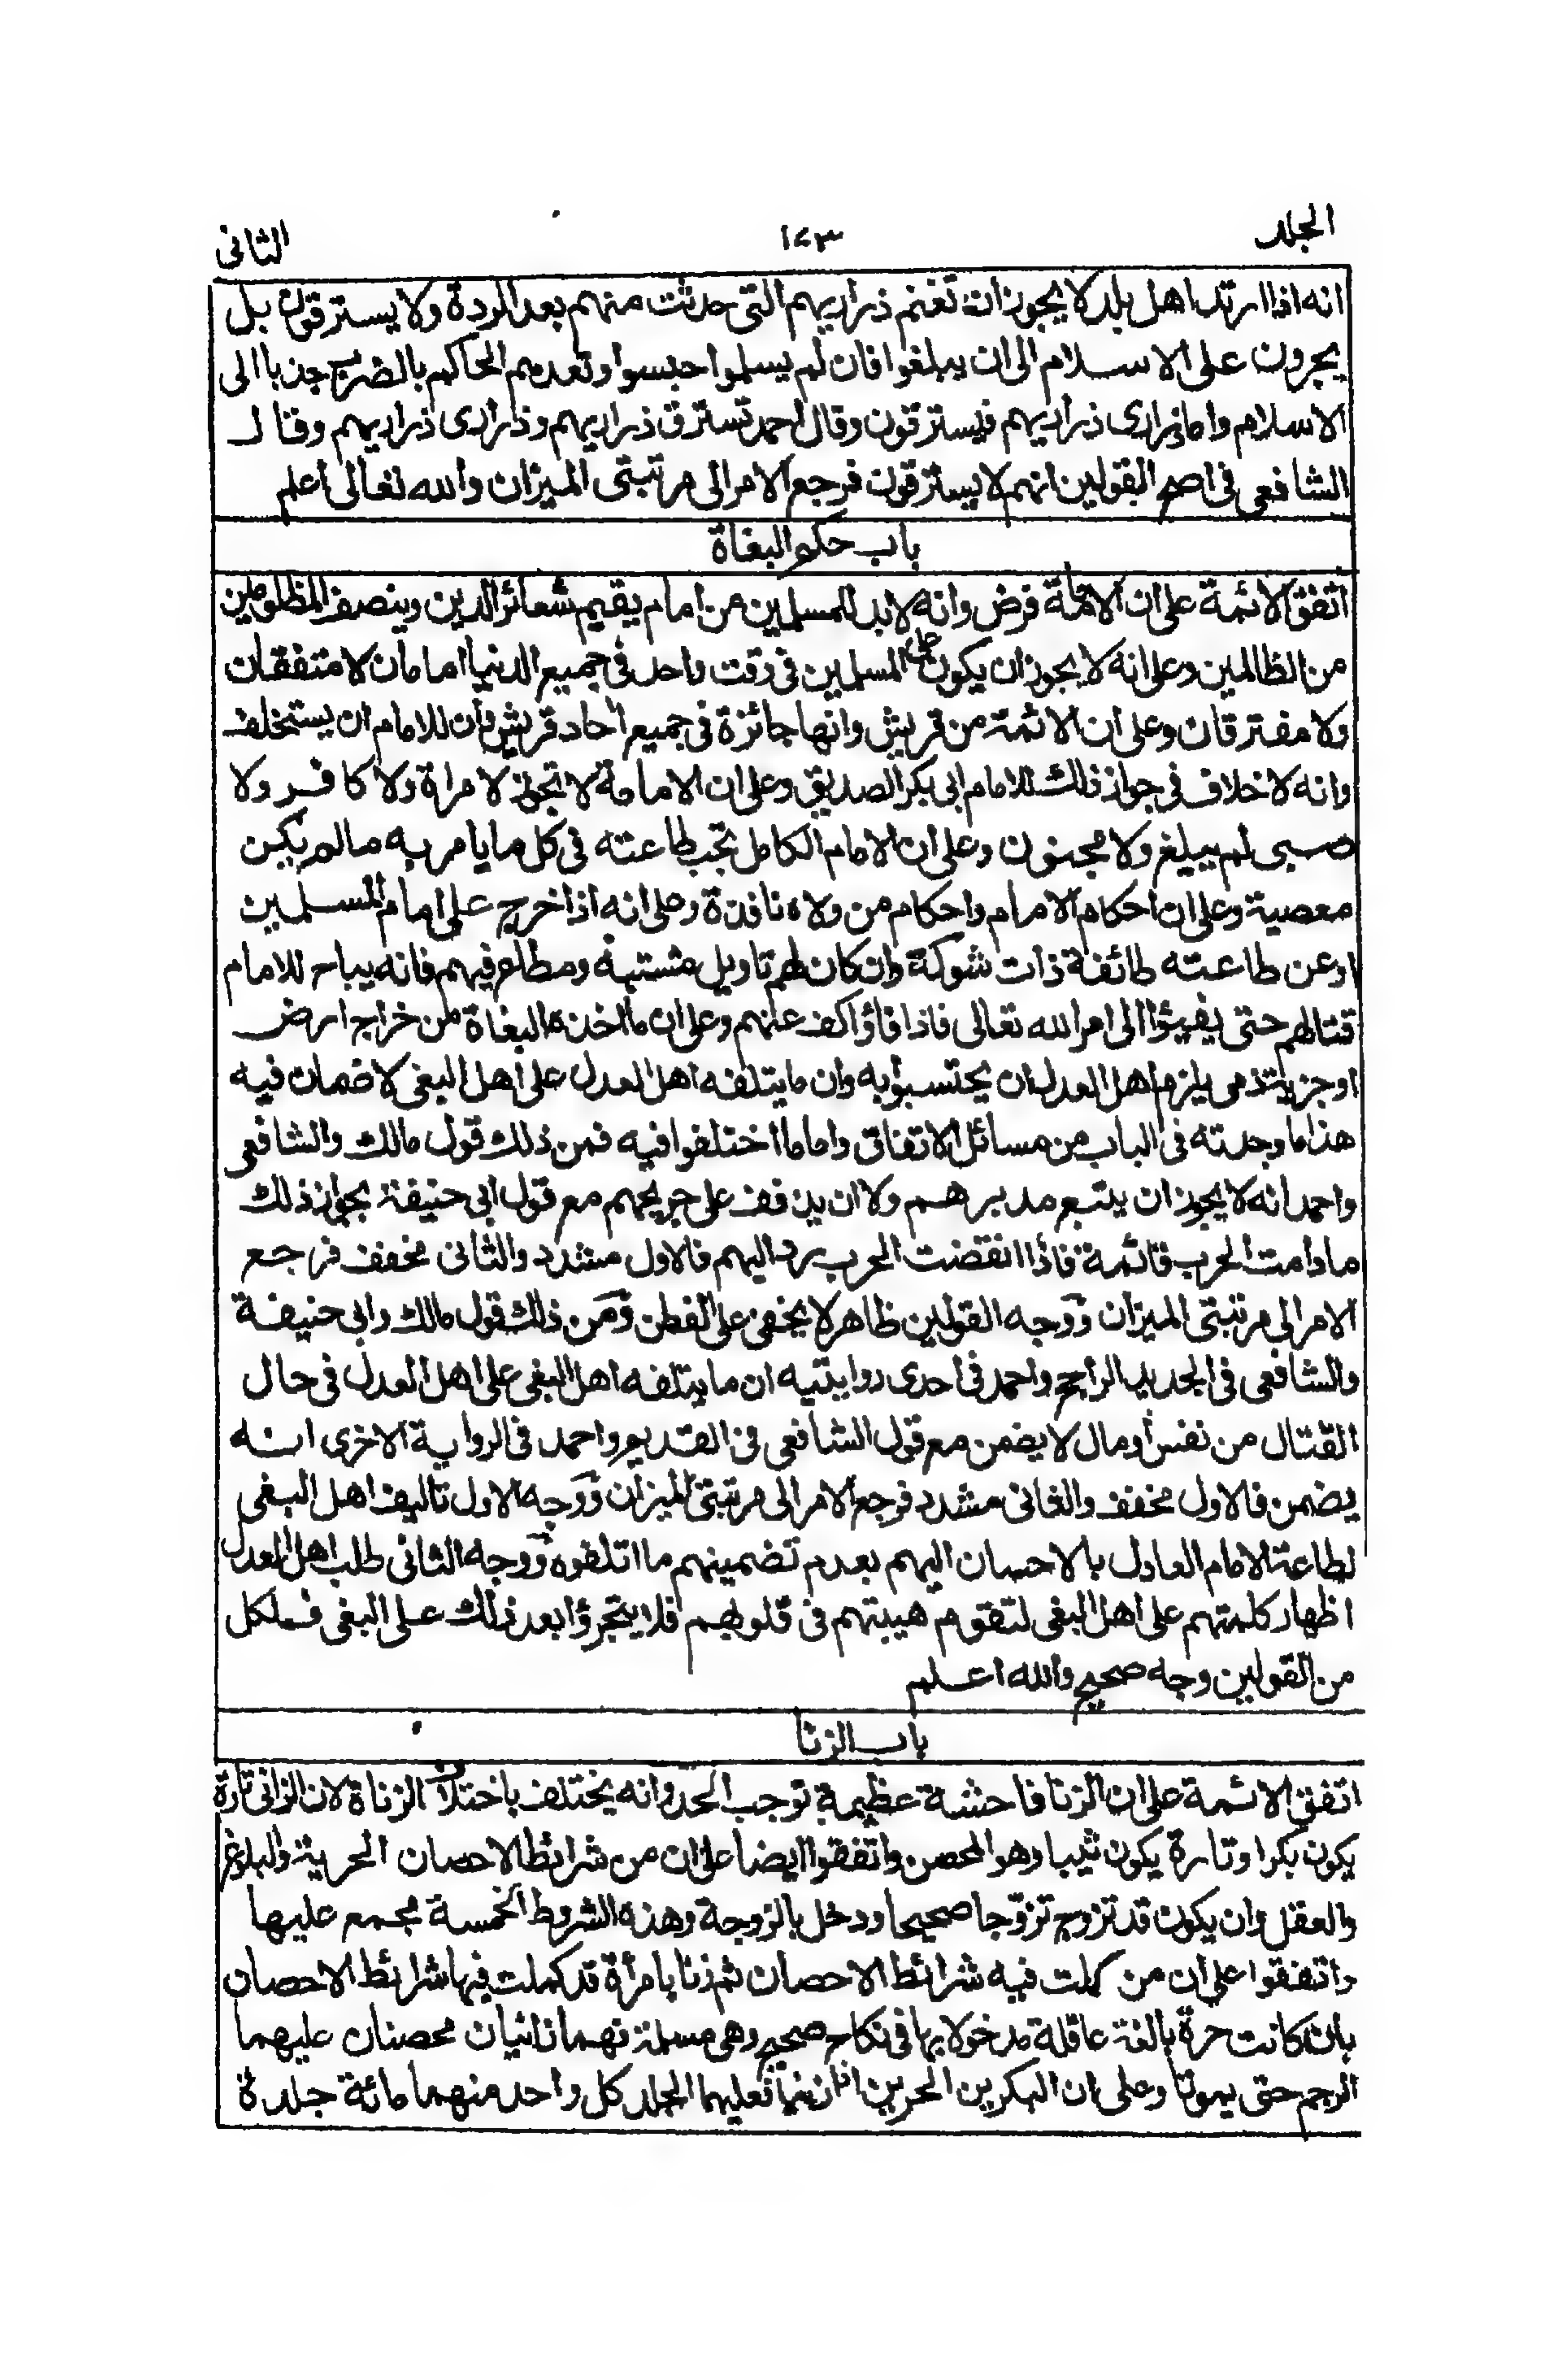 الجلد ١٧٣ الثانى
انه اذا ارتد اهل بلد لا يجوز ان تغنم ذراريهم التى حدثت منهم بعد الردة ولا يسترقون بل
يجرون على الاسلام الى ان يبلغوا فان لم يسلموا حبسوا وتعدهم الحاكم بالضرب جذبا الى
الاسلام واما ذرارى ذراريهم فيسترقون وقال احمد تسترق ذراريهم وذرارى ذراريهم وقال
الشافعى فى اصح القولين انهم لا يسترقون فرجع الامر الى مرتبتى الميزان والله تعالى اعلم
باب حكم البغاة
اتفق الائمة على ان الامامة فرض وانه لابد للمسلمين من امام يقيم شعائر الدين وينصف المظلومين
من الظالمين وعلى انه لا يجوز ان يكون على المسلمين فى وقت واحد فى جميع الدنيا امامان لا متفقان
ولا مفترقان وعلى ان الائمة من قريش وانها جائزة فى جميع احاد قريش وان للامام ان يستخلف
وانه لا خلاف فى جواز ذلك للامام ابى بكر الصديق وعلى ان الامامة لا تجوز لامراة ولا كافر ولا
صبى لم يبلغ ولا مجنون وعلى ان الامام الكامل تجب طاعته فى كل ما يامر به مالم يكن
معصية وعلى ان احكام الامام واحكام من ولاه نافذة وعلى انه اذا خرج على امام المسلمين
اوعن طاعته طائفة ذات شوكة وان كان لهم تاويل مشتبه ومطاع فيهم فانه يباح للامام
قتالهم حتى يفيئوا الى امر الله تعالى فاذا فاؤا كف عنهم وعلى ان ما اخذه البغاة من خراج ارض
اوجزية ذمى يلزم اهل العدل ان يحتسبوا به وان ما يتلفه اهل العدل على اهل البغى لا ضمان فيه
هذا ما وجدته فى الباب من مسائل الاتفاق واما ما اختلفوا فيه فمن ذلك قول مالك والشافعى
واحمد انه لا يجوز ان يتبع مدبرهم ولا ان يذفف على جريحهم مع قول ابى حنيفة بجواز ذلك
مادامت الحرب قائمة فاذا انقضت الحرب يرد اليهم فالاول مشدد والثانى مخفف فرجع
الامر الى مرتبتى الميزان ووجه القولين ظاهر لا يخفى على الفطن ومن ذلك قول مالك وابى حنيفة
والشافعى فى الجديد الراجح واحمد فى احدى روايتيه ان ما يتلفه اهل البغى على اهل العدل فى حال
القتال من نفس أو مال لا يضمن مع قول الشافعى فى القديم واحمد فى الرواية الاخرى انه
يضمن فالاول مخفف والثانى مشدد فرجع الامر الى مرتبتى الميزان ووجه الاول تاليف اهل البغى
لطاعة الامام العادل بالاحسان اليهم بعدم تضمينهم ما اتلفوه ووجه الثانى طلب اهل العدل
اظهار كلمتهم على اهل البغى لتقوم هيبتهم فى قلوبهم فلا يتجرؤا بعد ذلك على البغى فلكل
من القولين وجه صحيح والله اعلم
باب الزنا
اتفق الائمة على ان الزنا فاحشة عظيمة توجب الحد وانه يختلف باختلاف الزناة لان الزانى تارة
يكون بكرا وتارة يكون ثيبا وهو المحصن واتفقوا ايضا على ان من شرائط الاحصان الحرية والبلوغ
والعقل وان يكون قد تزوج تزوّجا صحيحا ودخل بالزوجة وهذه الشروط الخمسة مجمع عليها
واتفقوا على ان من كملت فيه شرائط الاحصان ثم زنا بامرأة قد كملت فيها شرائط الاحصان
بان كانت حرة بالغة عاقلة مدخولا بها فى نكاح صحيح وهى مسلمة فهما زانيان محصنان عليهما
الرجم حتى يموتا وعلى ان البكرين الحرين اذا زنيا فعليهما الجلد كل واحد منهما مائة جلدة